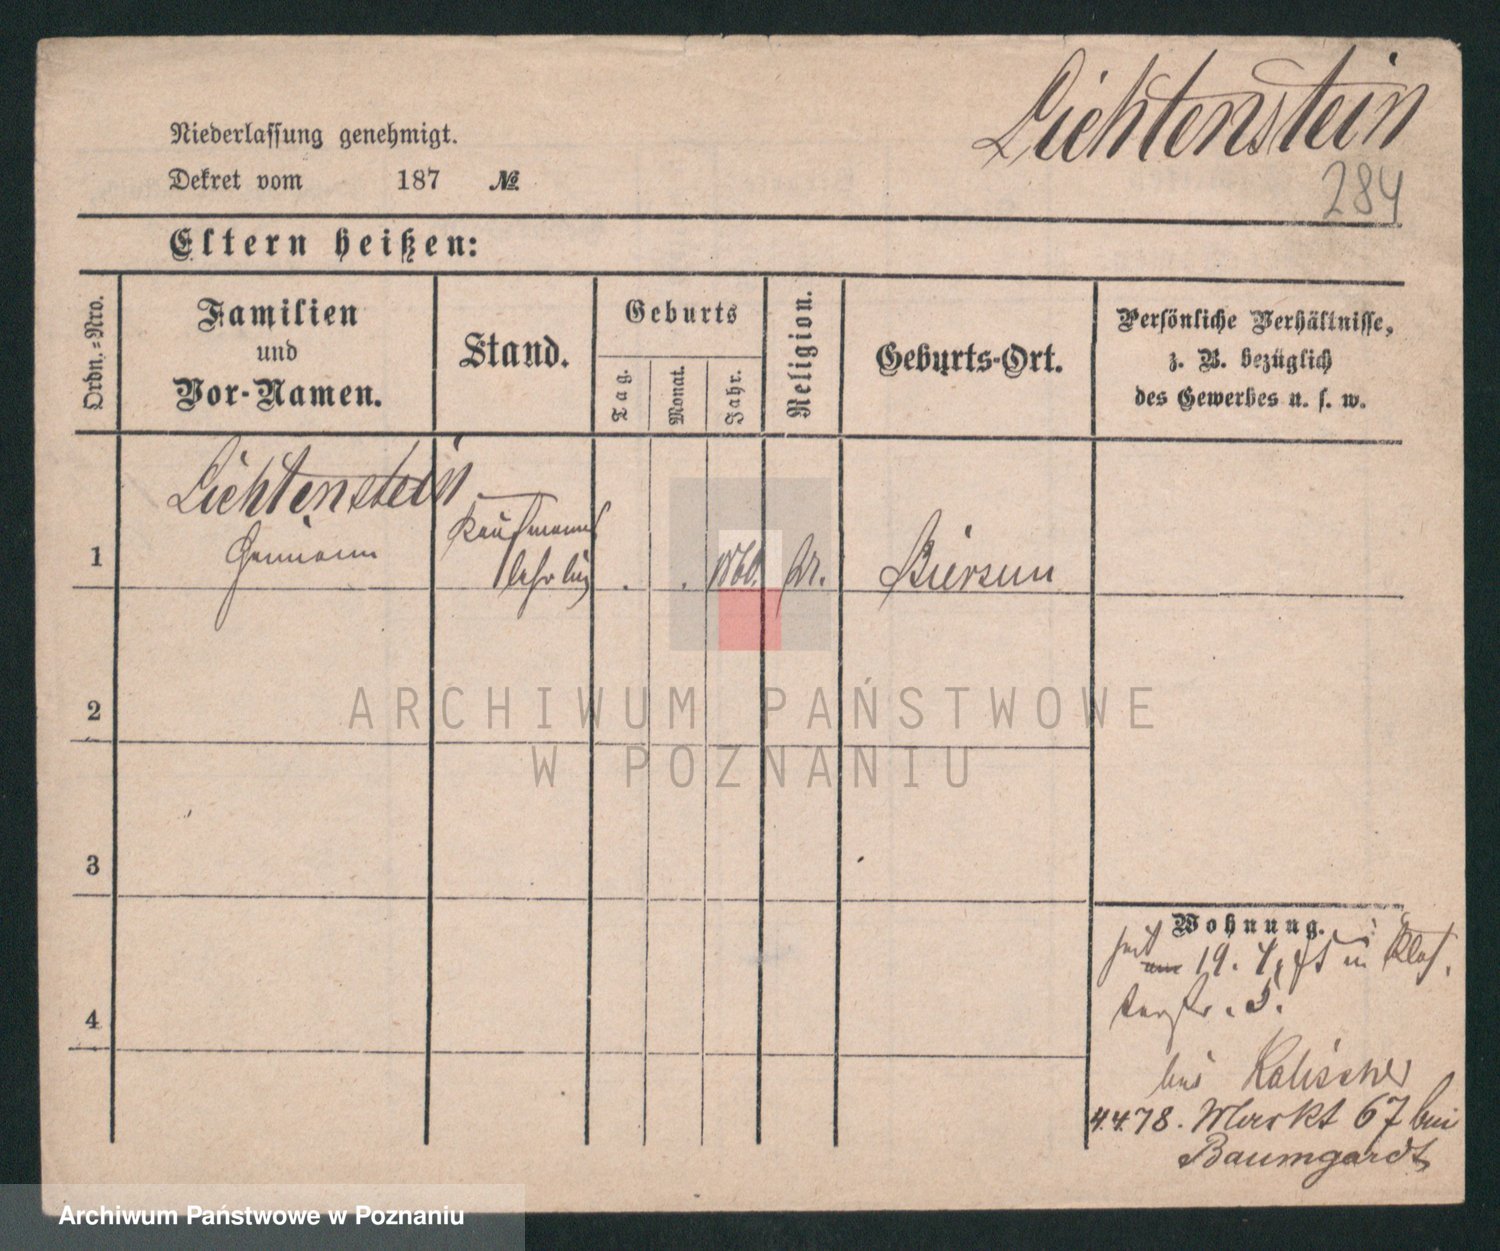 Lichtenstein
284
Niederlassung genehmigt.
Dekret vom 187 №
Eltern heißen:
Ordn.-Nro.
Familien
und
Vor-Namen.
Stand.
Geburts
Tag.
Monat.
Jahr.
Religion.
Geburts-Ort.
Persönliche Verhältnisse,
z. B. bezüglich
des Gewerbes u. s. w.
1
Lichtenstein
Hermann
Kaufmanns
lehrling
1860.
2
3
4
Wohnung.
seit 19. 4.
terstr. 5.
bei Kalischer
4.4.78. Markt 67 bei
Baumgardt
ARCHIWUM PAŃSTWOWE
W POZNANIU
Archiwum Państwowe w Poznaniu